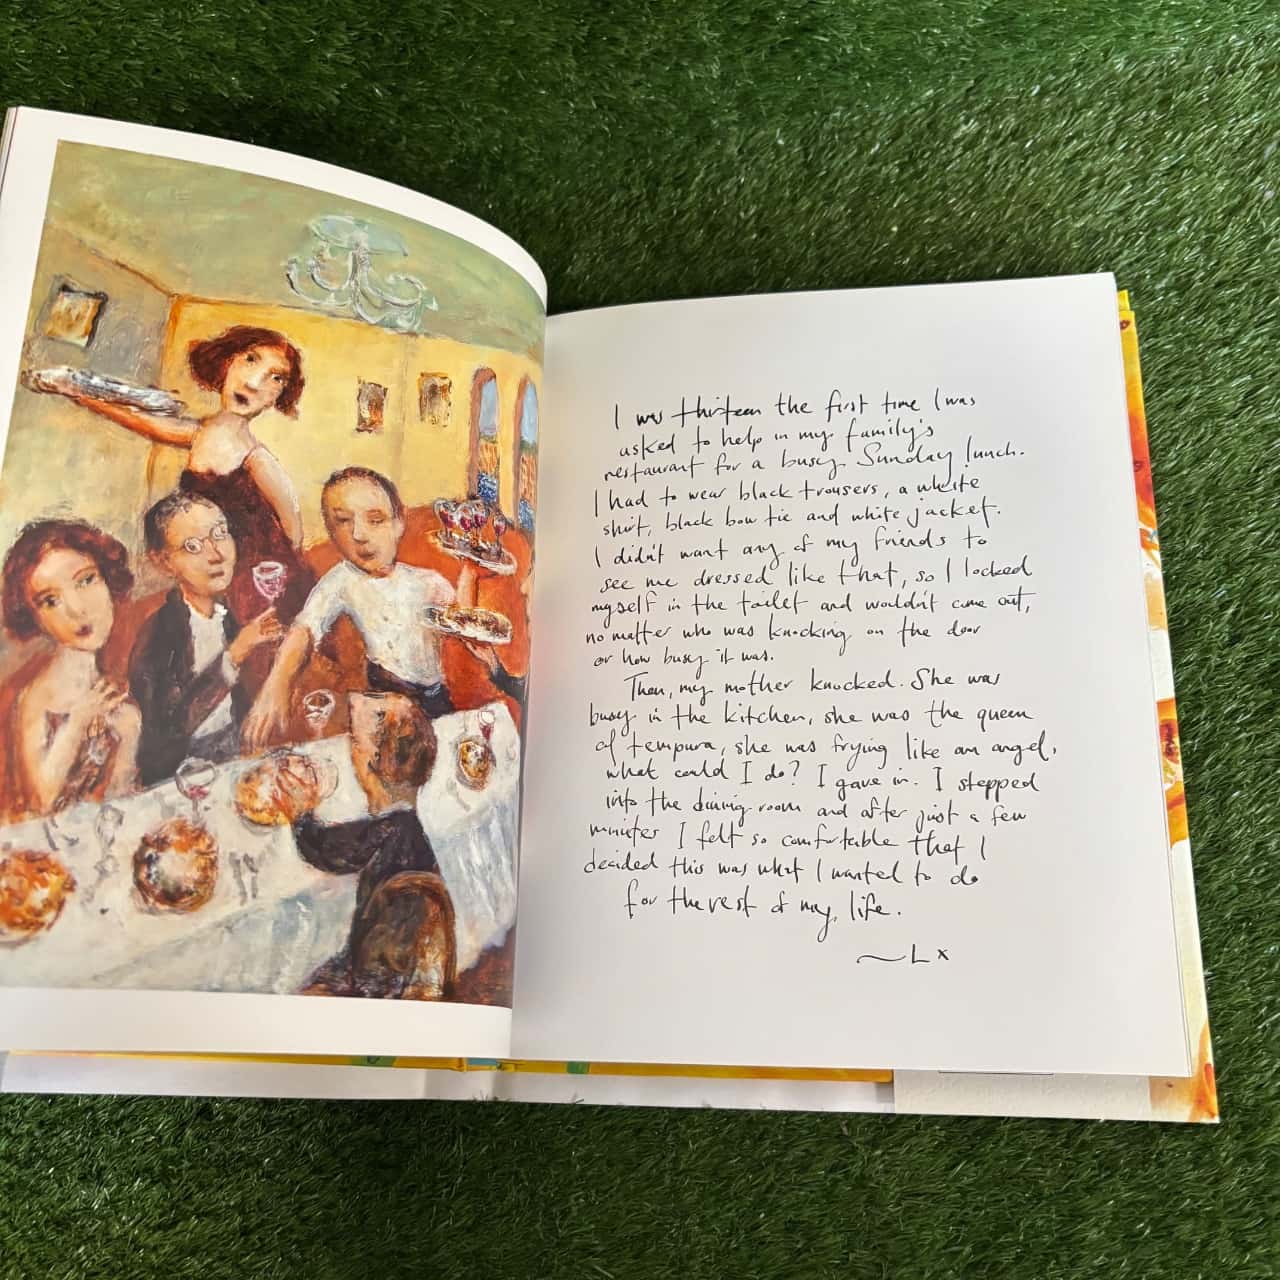 I was thirteen the first time I was
asked to help in my family's
restaurant for a busy Sunday lunch.
I had to wear black trousers, a white
shirt, black bow tie and white jacket.
I didn't want any of my friends to
see me dressed like that, so I locked
myself in the toilet and wouldn't come out,
no matter who was knocking on the door
or how busy it was.
Then, my mother knocked. She was
busy in the kitchen, she was the queen
of tempura, she was frying like an angel,
what could I do? I gave in. I stepped
into the dining room and after just a few
minutes I felt so comfortable that I
decided this was what I wanted to do
for the rest of my life.
~L x